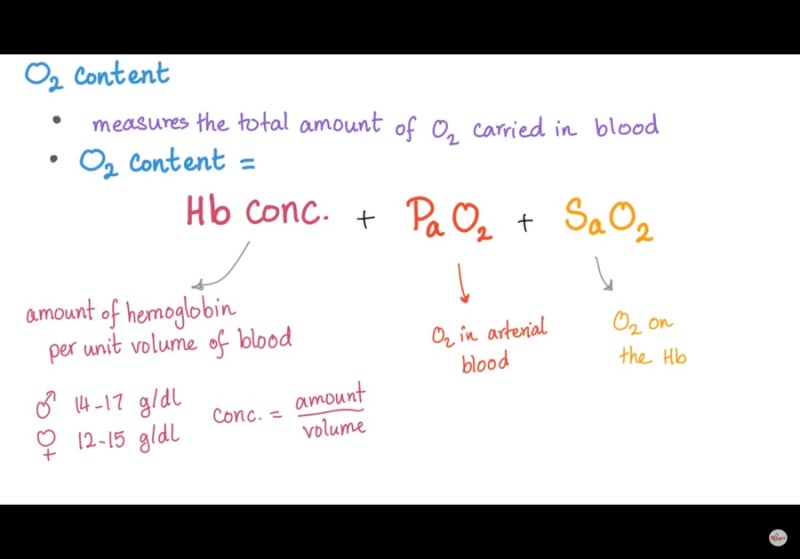 O₂ Content
• measures the total amount of O₂ carried in blood
• O₂ Content =
Hb Conc. + PaO₂ + SaO₂
amount of hemoglobin
per unit volume of blood
O₂ in arterial
blood
O₂ on
the Hb
♂ 14-17 g/dl
♀ 12-15 g/dl
Conc. = amount
volume